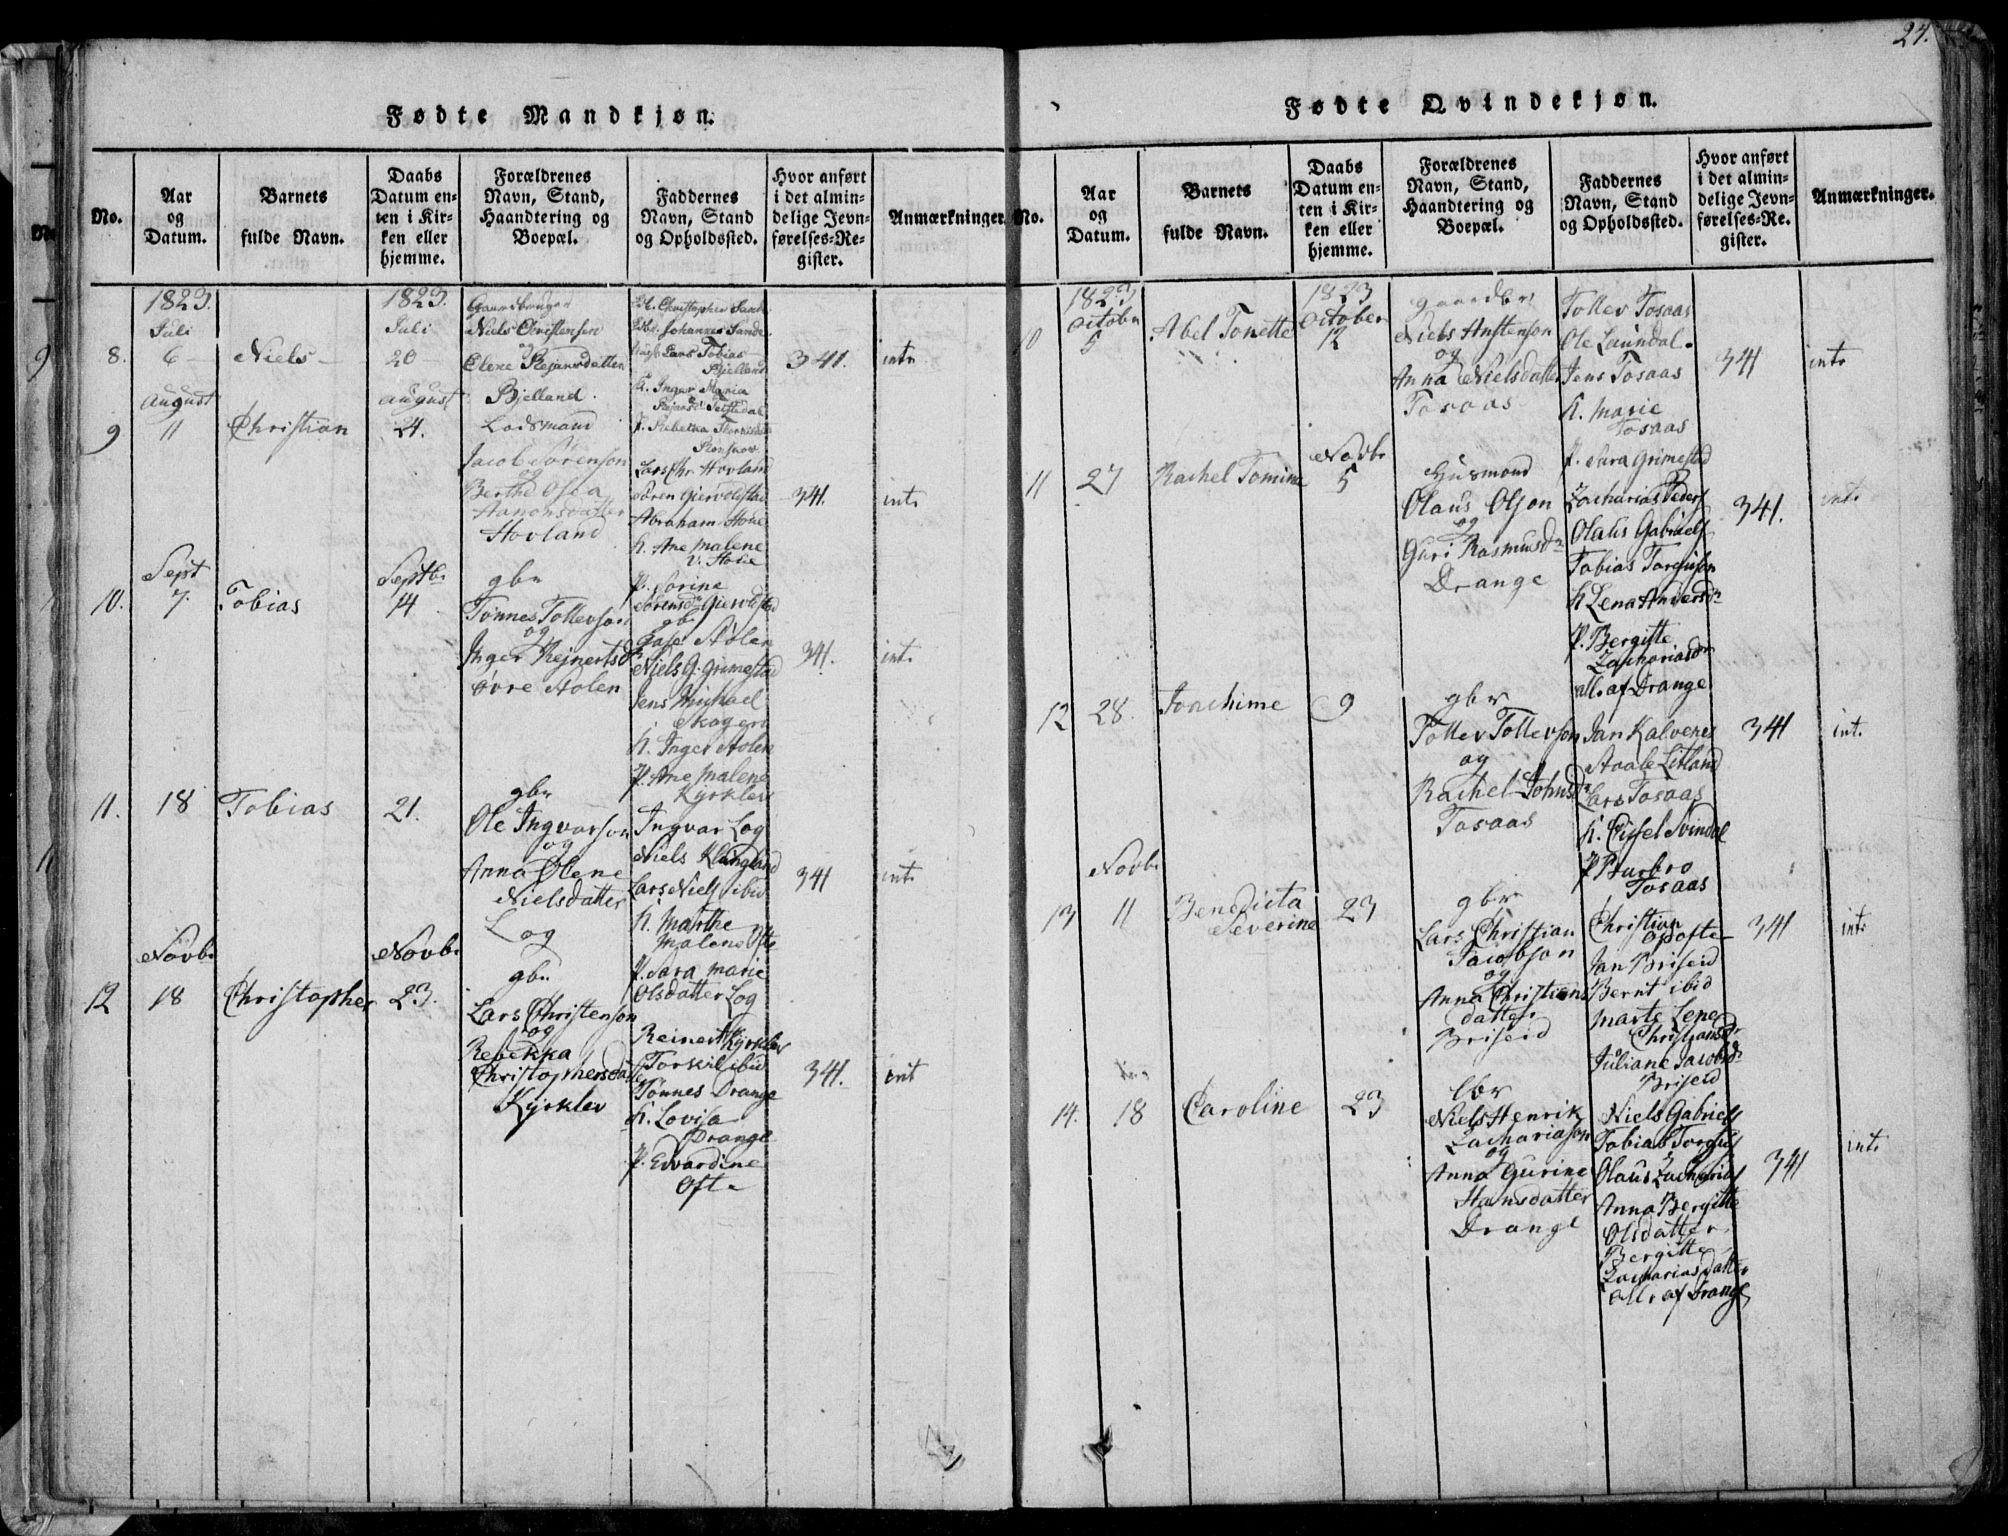 24.
Fødte Mandkjøn.
No.
Aar
og
Datum.
Barnets
fulde Navn.
Daabs
Datum en-
ten i Kir-
ken eller
hjemme.
Forældrenes
Navn, Stand,
Haandtering og
Boepæl.
Faddernes
Navn, Stand
og Opholdssted.
Hvor anført
i det almin-
delige Jevn-
førelses-Re-
gister.
Anmærkninger.
8.
1823.
Juli
6
Niels
1823.
Juli
20
Gaardbruger
Niels Christenson
og
Bjelland.
Christopher Sande
Johannes Sande
Lars Tobias
Bjelland
K. Inger Maria
341.
int.
9
August
11
Christian
August
24.
Lodsmand
Jacob Sørenson
og
Berthe Osea
Aanonsdatter
Hovland
Lars Chr. Hovland
Søren Giervoldstad
Abraham Hoie
K. Ane Malene
Hoie
P. Sorine
Sørensdr Giervoldstad
341.
int.
10.
Sept
7.
Tobias
Septbr
14
gbr
Tønnes Tollevson
og
Inger Rejnertsdr
øvre Aolen
gb
Aolen
Niels G. Grimestad
Jens Michael
Skogen
K. Inger Aolen
P. Ane Malene
Kyrklev
341.
int.
11.
18
Tobias
21.
gbr
Ole Ingvarson
og
Anna Olene
Nielsdatter
Log
Ingvar Log
Niels Klungland
Lars Niels ibid
K. Marthe
Malene Ofte
P. Sara Marie
Olsdatter Log
341
int.
12
Novbr
18
Christopher
Novbr
23.
gbr
Lars Christenson
og
Rebekka
Christophersdatter
Kyrklev
Reinert Kyrklev
Torkil ibid
Tønnes Drange
K. Lovisa
Drange
P. Edvardine
Ofte
341.
int
Fødte Qvindekjøn.
No.
Aar
og
Datum.
Barnets
fulde Navn.
Daabs
Datum en-
ten i Kir-
ken eller
hjemme.
Forældrenes
Navn, Stand,
Haandtering og
Boepæl.
Faddernes
Navn, Stand
og Opholdssted.
Hvor anført
i det almin-
delige Jevn-
førelses-Re-
gister.
Anmærkninger.
10
1823
October
5
Abel Tonette
1823
October
12
gaardbr
Niels Anstenson
og
Anna Nielsdatter
Tosaas
Tollev Tosaas
Ole Laundal.
Jens Tosaas
K. Marie
Tosaas
P. Sara Grimestad
341
int.
11
27
Rachel Tomine
Novbr
5
Husmand
Olaus Olson
og
Guri Rasmusdr
Drange
Zacharias Peders
Olaus Gabriels
Tobias Torguson
K Lena Andersdr
P. Bergitte
Zachariasdr
all. af Drange
341.
int.
12
28.
Joachime
9
gbr
Tollev Tollevson
og
Rachel Johnsdr
Tosaas
Jan Kalvenes
Aaale Litland
Lars Tosaas
K. Sissel Svindal
P Burbro
Tosaas
341
int.
13
Novbr
11
Benedicta
Severine
23
gbr
Lars Christian
Jacobson
og
Anna Christians
datter
Briseid
Christian
Opofte
Jan Briseid
Bernt ibid
Marte Lene
Christiansdr
Juliane Jacobsdr
Briseid
341
int.
14.
18
Caroline
23
gbr
Niels Henrik
Zachariason
og
Anna Gurine
Hansdatter
Drange
Niels Gabriels
Tobias Torgus
Olaus Zacharias
Anna Bergitte
Olsdatter
Bergitte
Zachariasdatter
all. af Drange
341
int.